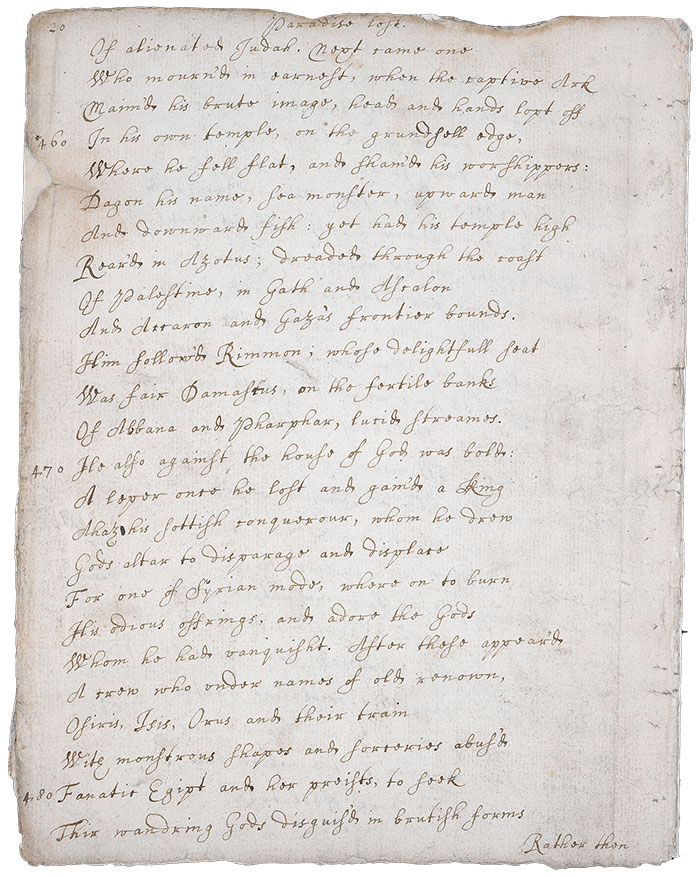 20 Paradise lost.
Of alienated Judah. Next came one
Who mourn'd in earnest, when the captive Ark
Maim'd his brute image, head and hands lopt off
460 In his own temple, on the grundsell edge,
Where he fell flat, and sham'd his worshippers:
Dagon his name, sea monster, upward man
And downward fish: yet had his temple high
Rear'd in Azotus; dreaded through the coast
Of Palestine, in Gath and Ascalon
And Accaron and Gaza's frontier bounds.
Him follow'd Rimmon; whose delightfull seat
Was fair Damascus, on the fertile banks
Of Abbana and Pharphar, lucid streames.
470 He also against the house of God was bold:
A leper once he lost and gain'd a King
Ahaz his sottish conquerour, whom he drew
Gods altar to disparage and displace
For one of Syrian mode, where on to burn
His odious offrings, and adore the Gods
Whom he had vanquisht. After these appear'd
A crew who under names of old renown,
Osiris, Isis, Orus and their train
With monstrous shapes and sorceries abus'd
480 Fanatic Egipt and her preists, to seek
Thir wandring Gods disguis'd in brutish forms
Rather then